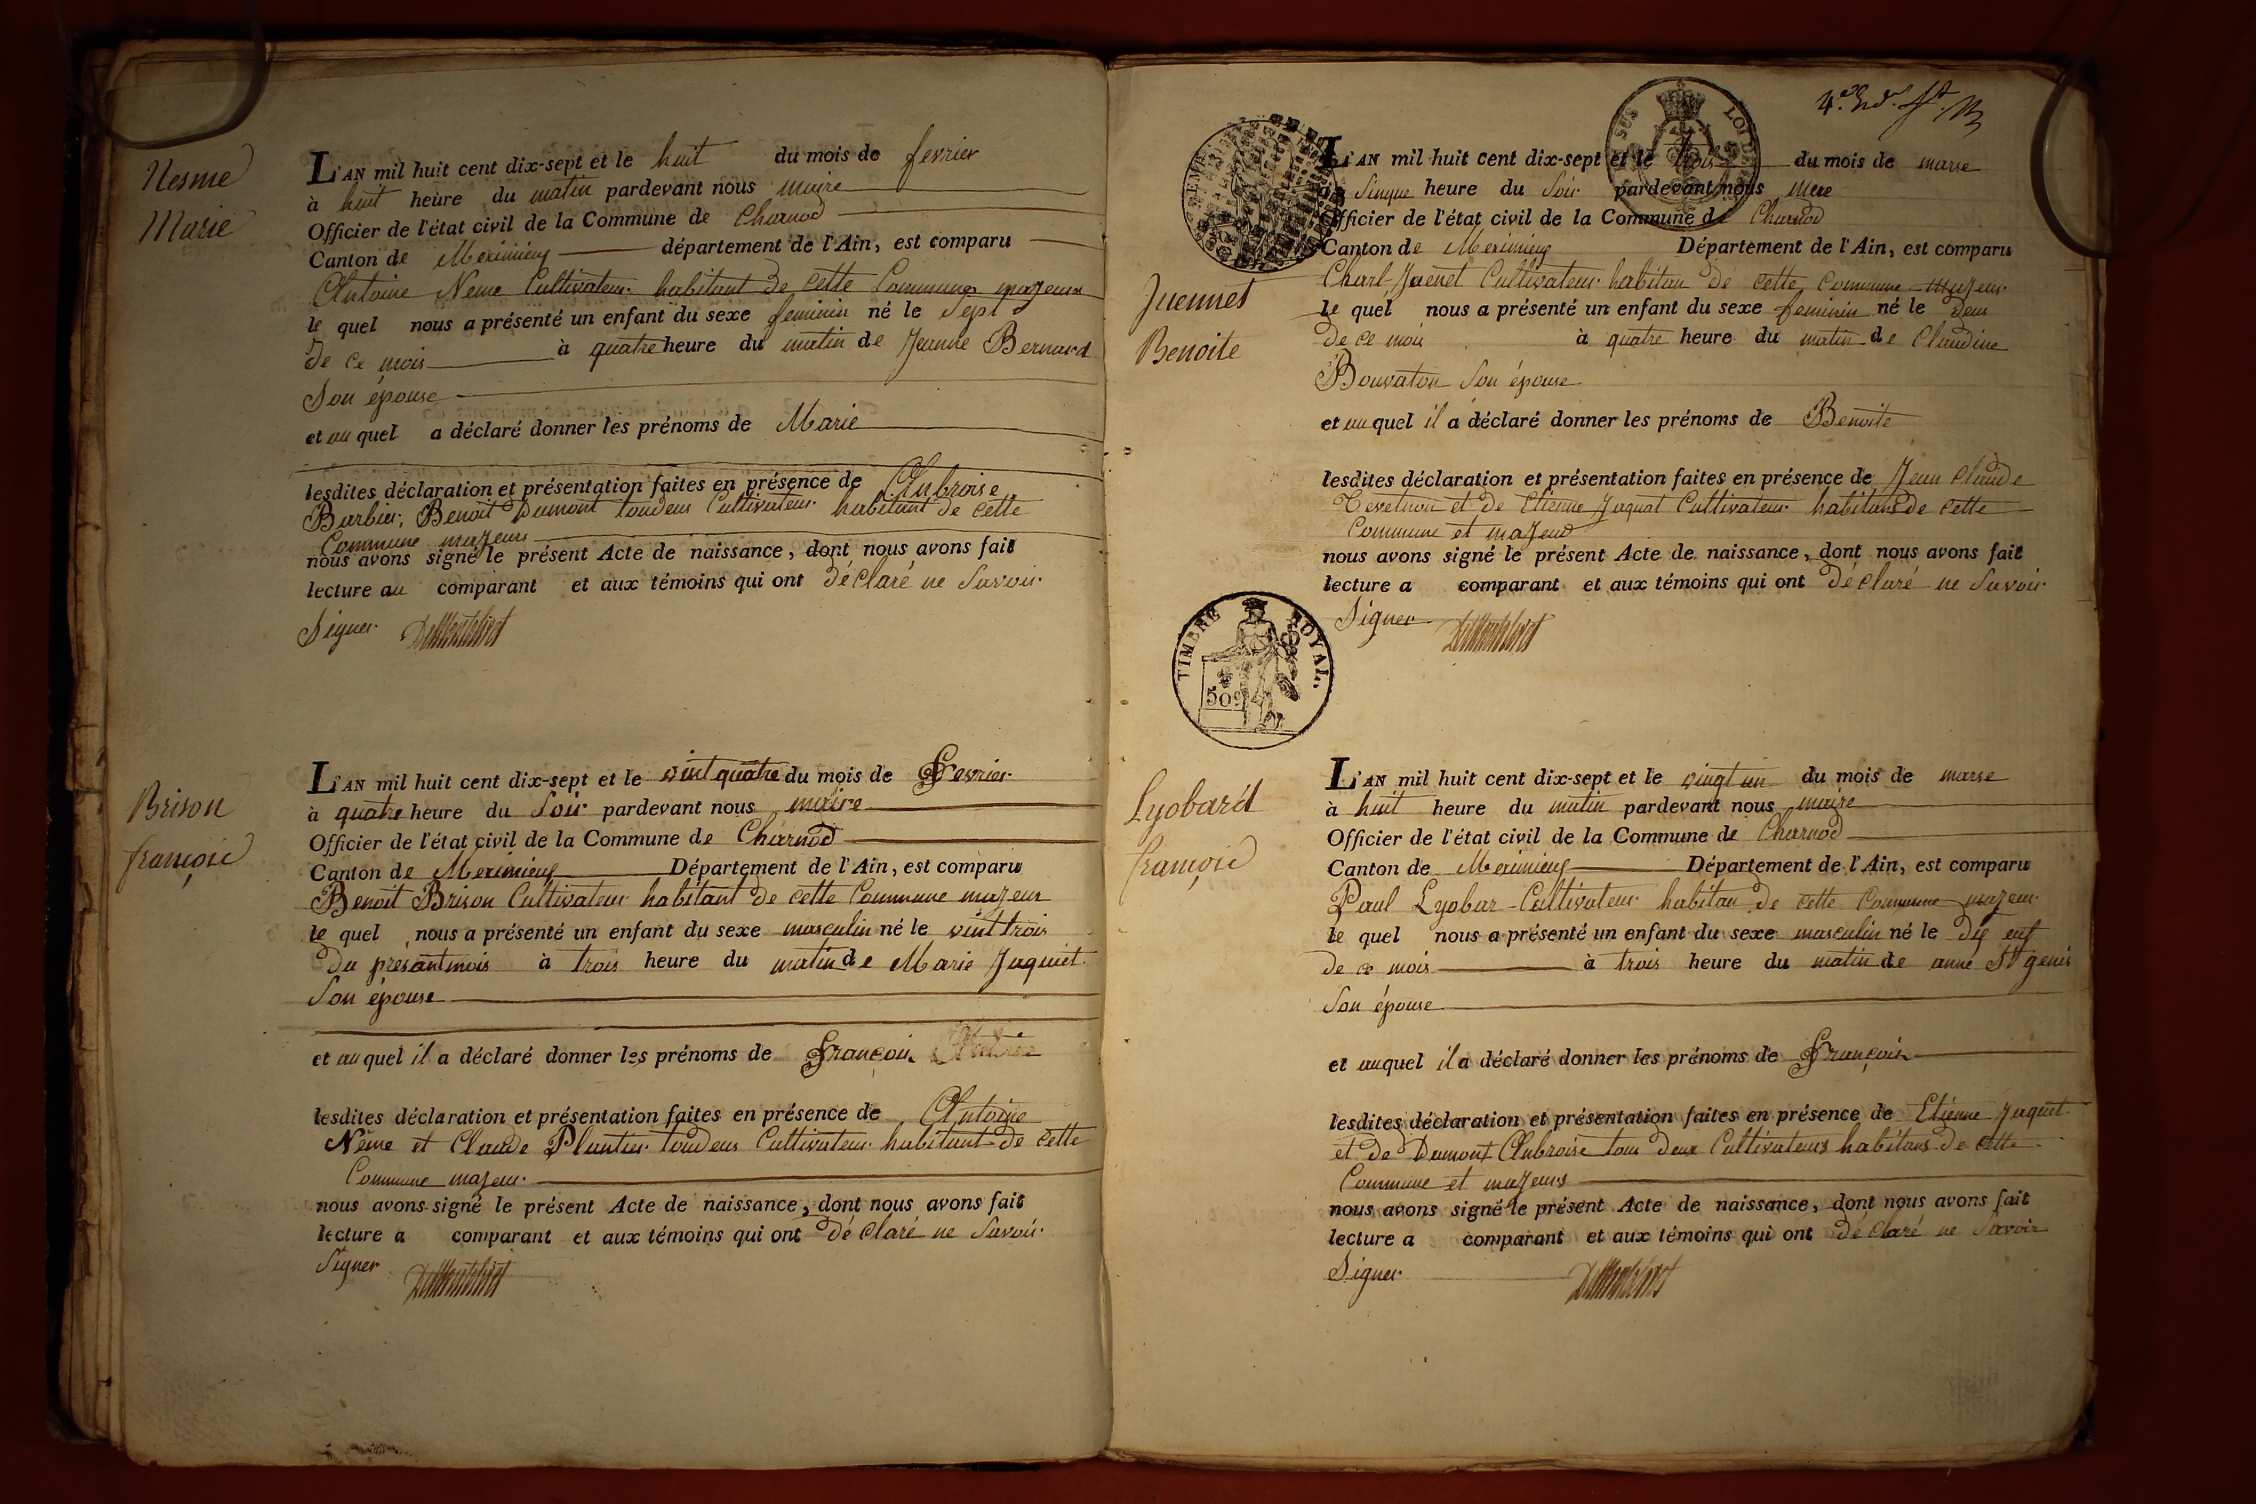 Nesme
Marie
L'AN mil huit cent dix-sept et le huit du mois de fevrier
à huit heure du matin pardevant nous maire
Officier de l'état civil de la Commune de Charnod
Canton de Meximieug département de l'Ain, est comparu
Antoine Neme Cultivateur habitant de cette Commune majeur
le quel nous a présenté un enfant du sexe feminin né le Sept
de ce mois à quatre heure du matin de Jeanne Bernard
Son épouse
et au quel a déclaré donner les prénoms de Marie
lesdites déclaration et présentation faites en présence de Anbroise
Barbier, Benoit Dumont toudeus Cultivateur habitant de cette
Commune majeurs
nous avons signé le présent Acte de naissance, dont nous avons fait
lecture au comparant et aux témoins qui ont déclaré ne Savoir
Signer
Brison
françoie
L'AN mil huit cent dix-sept et le vint quatre du mois de Fevrier
à quatre heure du Soir pardevant nous maire
Officier de l'état civil de la Commune de Charnod
Canton de Meximieug Département de l'Ain, est comparu
Benoit Brison Cultivateur habitant de cette Commune majeur
le quel nous a présenté un enfant du sexe masculin né le vint trois
du presant mois à trois heure du matin de Marie Jaquiet
Son épouse
et au quel il a déclaré donner les prénoms de François
lesdites déclaration et présentation faites en présence de Antoine
Néme et Claude Plantier toudeus Cultivateur habitant de cette
Commune majeur
nous avons signé le présent Acte de naissance, dont nous avons fait
lecture a comparant et aux témoins qui ont déclaré ne Savoir
Signer
TIMBRE ROYAL.
50c
Juennet
Benoite
L'AN mil huit cent dix-sept et le trois du mois de marse
à Sinque heure du Soir pardevant nous mere
Officier de l'état civil de la Commune de Charnod
Canton de Meximieug Département de l'Ain, est comparu
Charl Juenet Cultivateur habitan de cette Commune majeur
le quel nous a présenté un enfant du sexe feminin né le deu
de ce mois à quatre heure du matin de Claudine
Bouvaton Son épouse
et au quel il a déclaré donner les prénoms de Benoite
lesdites déclaration et présentation faites en présence de Jean Claude
et de Etienne Jaquat Cultivateur habitans de cette
Commune et majeur
nous avons signé le présent Acte de naissance, dont nous avons fait
lecture a comparant et aux témoins qui ont déclaré ne Savoir
Signer
Lyobard
françoie
L'AN mil huit cent dix-sept et le vingt un du mois de marse
à huit heure du matin pardevant nous maire
Officier de l'état civil de la Commune de Charnod
Canton de Meximieug Département de l'Ain, est comparu
Paul Lyobar Cultivateur habitan de cette Commune majeur
le quel nous a présenté un enfant du sexe masculin né le dig euf
de ce mois à trois heure du matin de anne St genis
Son épouse
et auquel il a déclaré donner les prénoms de François
lesdites déclaration et présentation faites en présence de Etienne Jaquet
et de Dumont Anbroise tous deux Cultivateurs habitans de cette
Commune et majeurs
nous avons signé le présent Acte de naissance, dont nous avons fait
lecture a comparant et aux témoins qui ont déclaré ne Savoir
Signer